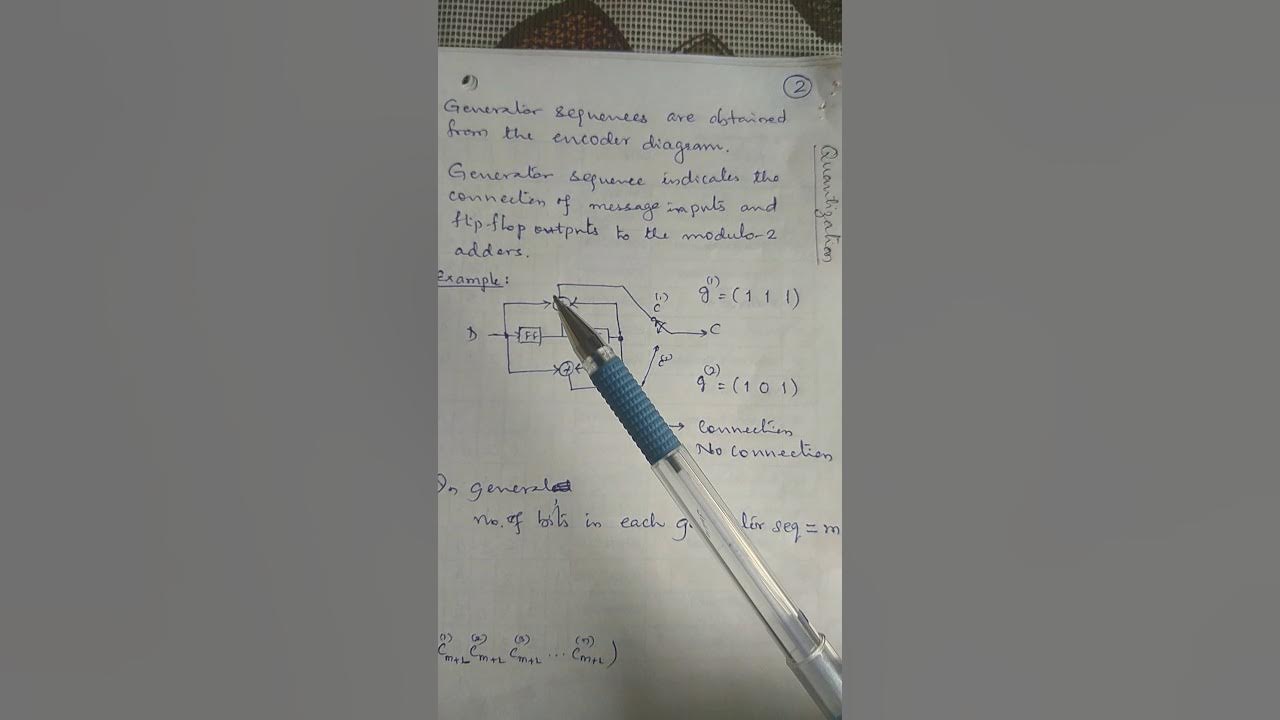 2
Generator sequences are obtained
from the encoder diagram.
Generator sequence indicates the
connection of message inputs and
flip flop outputs to the modulo-2
adders.
Quantization
Example:
g(1) = ( 1 1 1 )
C(1)
D
FF
C
C(2)
g(2) = ( 1 0 1 )
→ Connection
No connection
In general
no. of bits in each seq = m
C(1)m+L C(2)m+L C(3)m+L ... C(n)m+L )